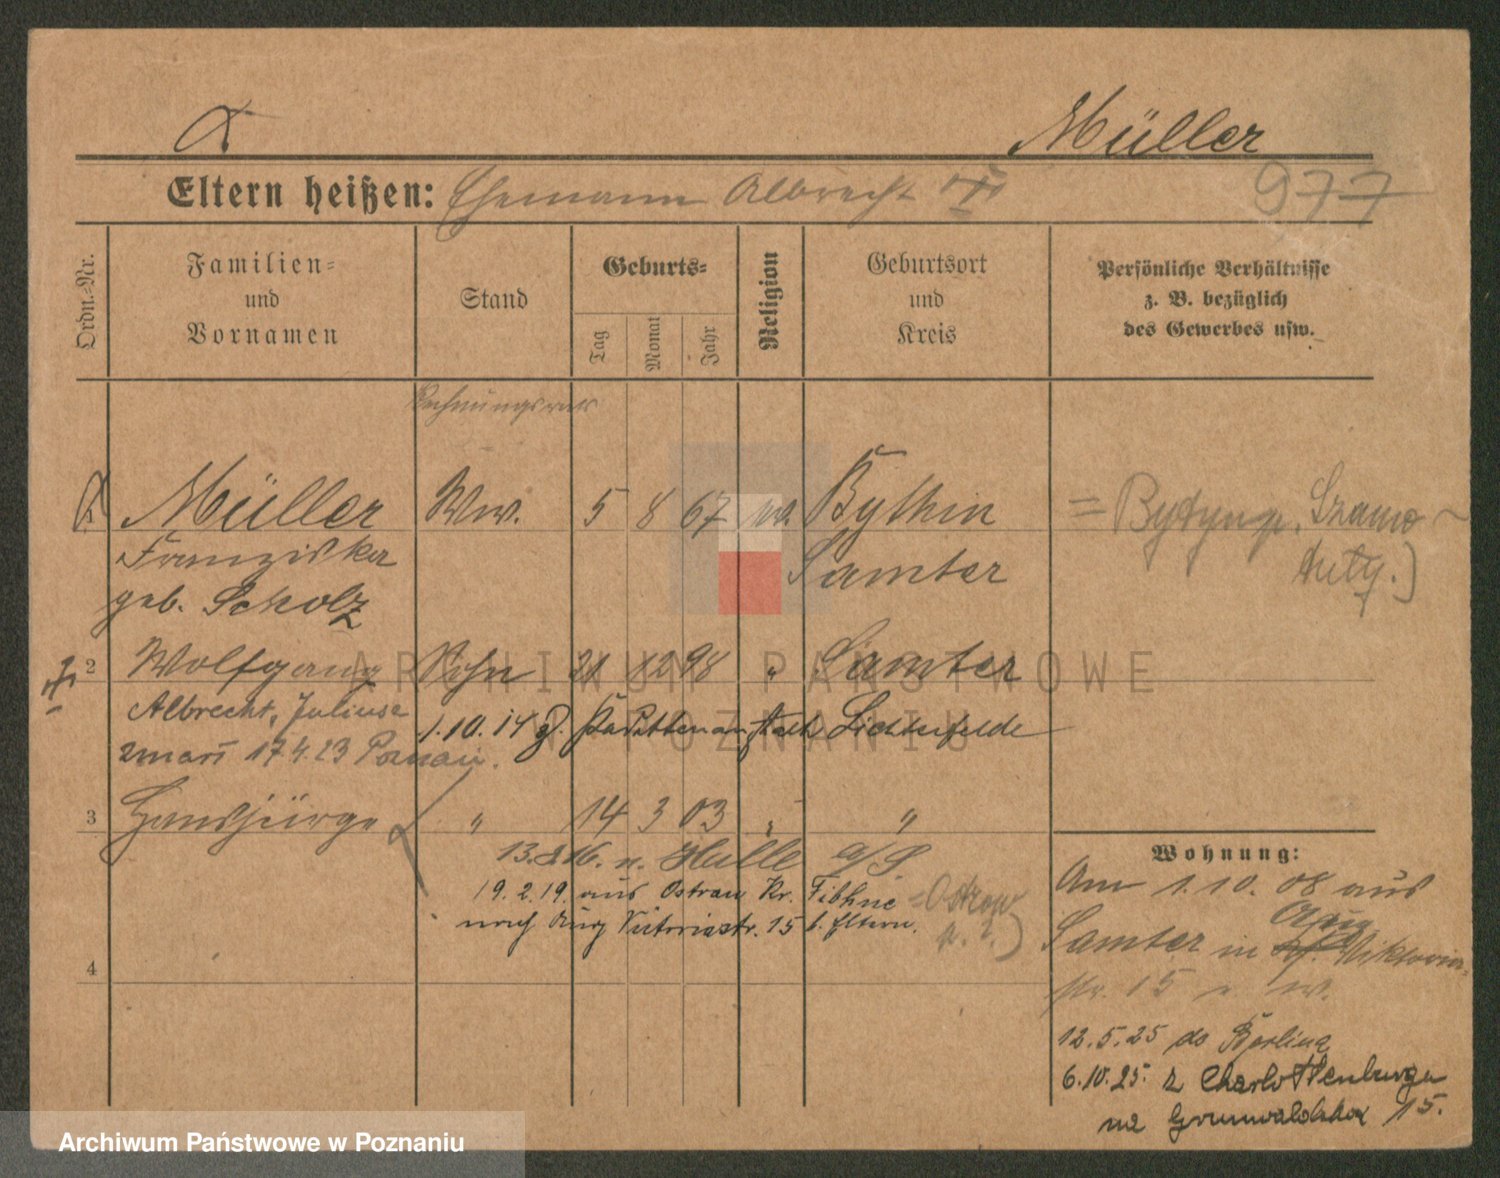 Müller
Eltern heißen: Ehemann Albrecht
977
Ordn.-Nr.
Familien-
und
Vornamen
Stand
Geburts-
Tag
Monat
Jahr
Religion
Geburtsort
und
Kreis
Persönliche Verhältnisse
z. B. bezüglich
des Gewerbes usw.
1 Müller Ww. 5 8 67 ev. Bythin
Franziska Samter
geb. Scholz
= Bytyń, p. Szamo-
tuły.)
2 Wolfgang Sohn 21 12 98 " Samter
Albrecht, Julius
1.10.14 Lichterfelde
zmarł 17.4.23 Poznań.
3 Hansjürge " 14 3 03 " "
13. 16. n. Halle a/S.
19.2.19. aus Ostrau Kr. Filehne = Ostrow
nach Victoriastr. 15 b. Eltern.
4
Wohnung:
Am 1.10.08 aus
Samter in Viktoria-
str. 15
12.5.25 do Berlina
6.10.25. z Charlottenburga
na Grunwaldzka 15.
ARCHIWUM PAŃSTWOWE
W POZNANIU
Archiwum Państwowe w Poznaniu